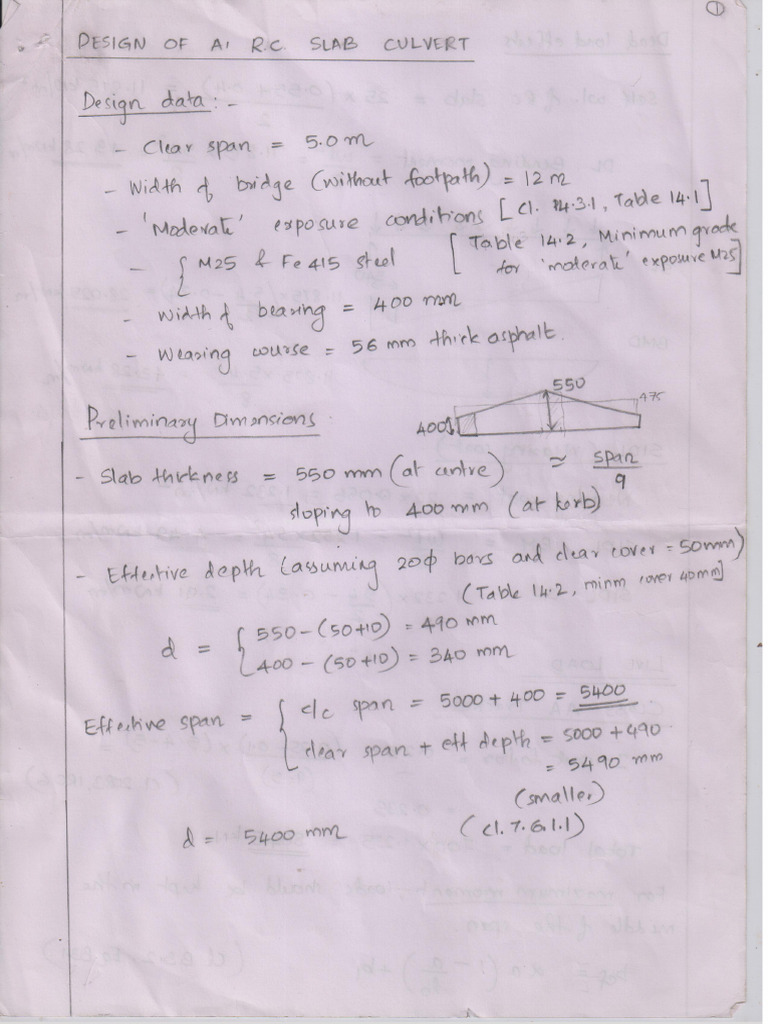 1
DESIGN OF A. R.C. SLAB CULVERT
Design data:-
- Clear span = 5.0 m
- Width of bridge (without footpath) = 12 m
- 'Moderate' exposure conditions [cl. 14.3.1, Table 14.1]
- { M25 & Fe 415 steel [Table 14.2, Minimum grade
for 'moderate' exposure M25]
- Width of bearing = 400 mm
- Wearing course = 56 mm thick asphalt.
550
475
400
Preliminary Dimensions
- Slab thickness = 550 mm (at centre) ≃ span/9
sloping to 400 mm (at kerb)
- Effective depth (assuming 20ϕ bars and clear cover = 50mm)
(Table 14.2, minm cover 40mm]
d = { 550-(50+10) = 490 mm
400 - (50+10) = 340 mm
Effective span = { c/c span = 5000 + 400 = 5400
clear span + eff depth = 5000 + 490
= 5490 mm
(smaller)
d = 5400 mm (cl. 7.6.1.1)